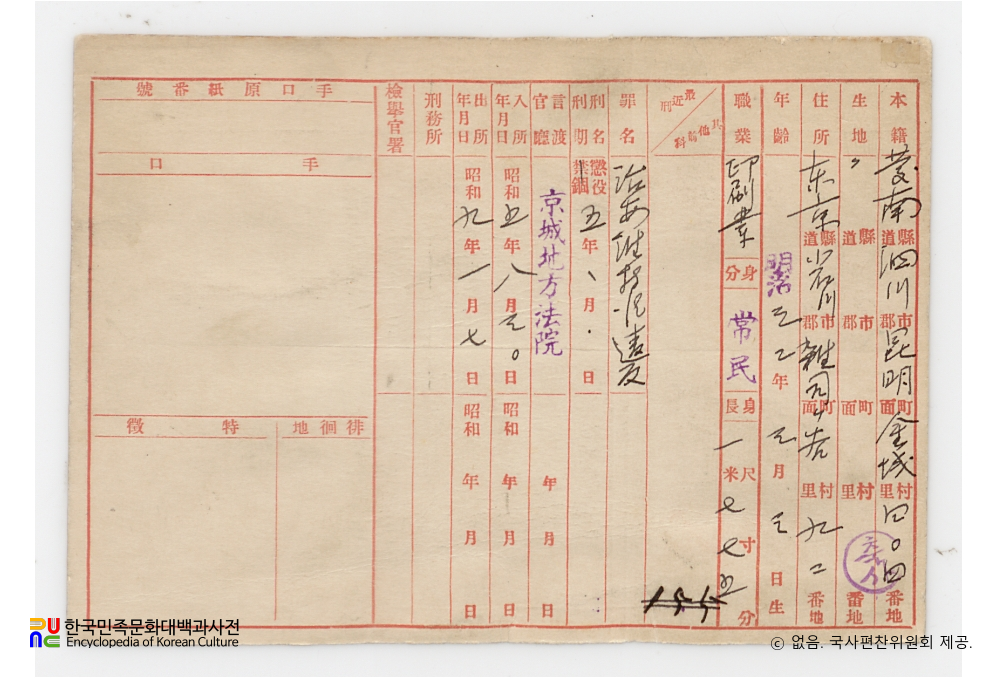 本籍 慶南 縣道 泗川 市郡 昆明 町面 金城 村里 四〇四 番地
生地 〃 縣道 市郡 町面 村里 番地
住所 東京 縣道 小石川 市郡 雜司ヶ谷 町面 村里 九二 番地
年齡 明治 三二年 三月 三日生
職業 印刷業 身分 常民 身長 一米尺 七七寸 五分
155
最近刑 其他前科
罪名 治安維持法違反
刑名 刑期 懲役 禁錮 五年 、月 ・日
言渡官廳 京城地方法院 年 月 日
入所年月日 昭和五年八月三〇日 昭和 年 月 日
出所年月日 昭和九年一月七日 昭和 年 月 日
刑務所
檢擧官署
手口原紙番號
手口
徘徊地
特徵
한국민족문화대백과사전
Encyclopedia of Korean Culture
ⓒ 없음. 국사편찬위원회 제공.